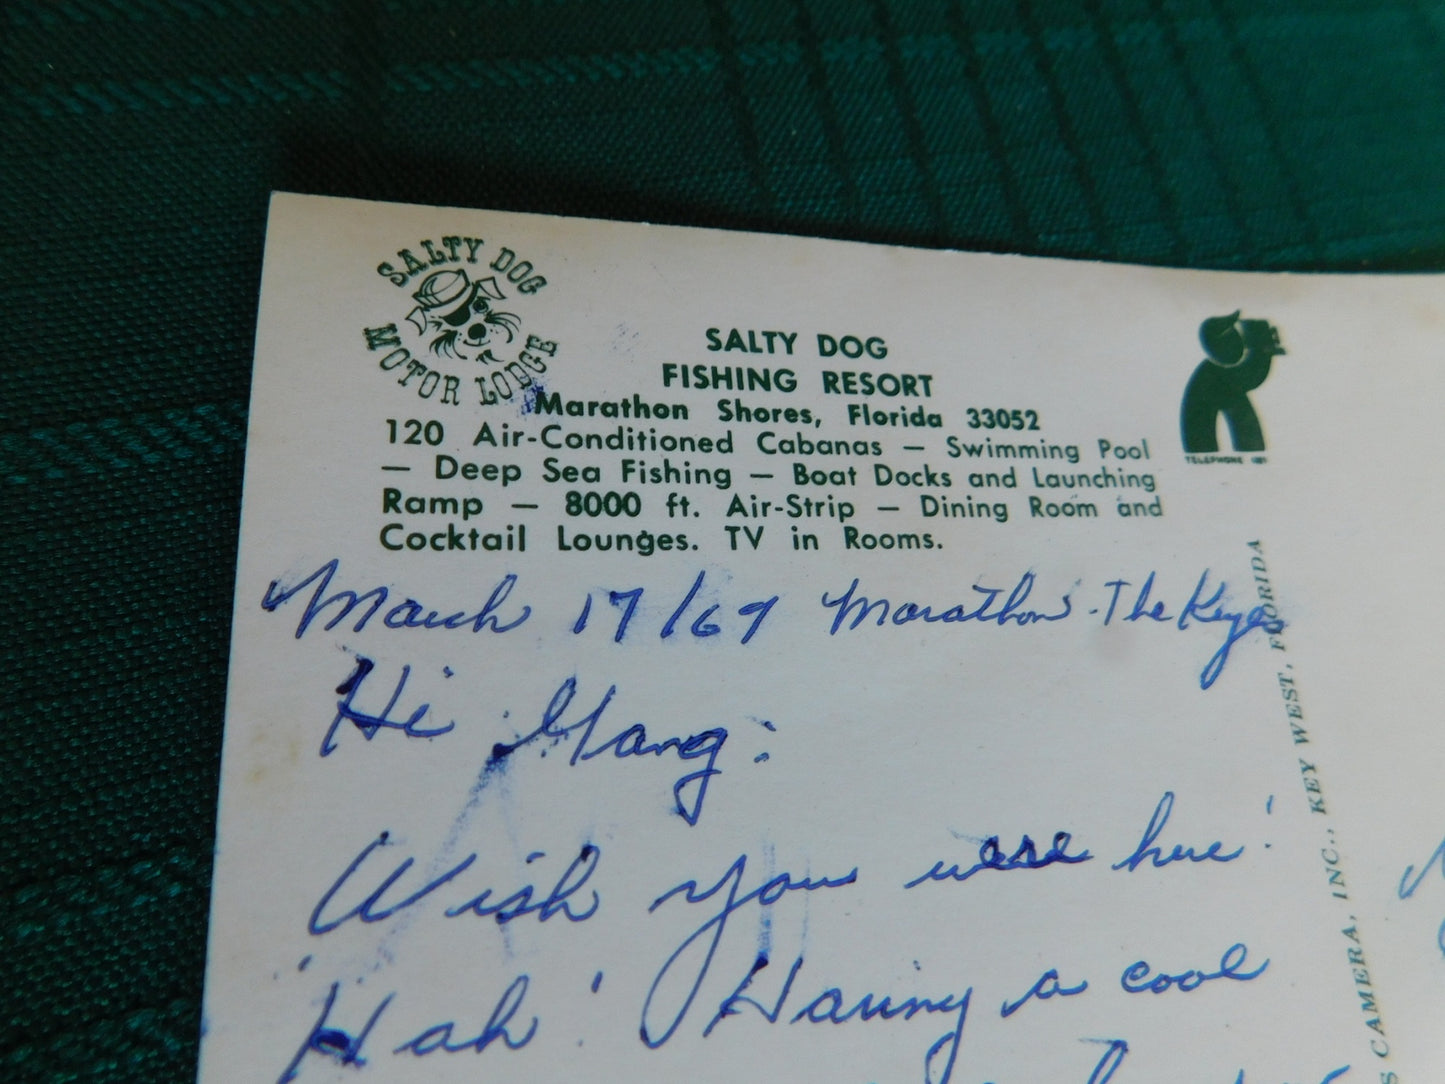 SALTY DOG
MOTOR LODGE
SALTY DOG
FISHING RESORT
Marathon Shores, Florida 33052
120 Air-Conditioned Cabanas — Swimming Pool
— Deep Sea Fishing — Boat Docks and Launching
Ramp — 8000 ft. Air-Strip — Dining Room and
Cocktail Lounges. TV in Rooms.
TELEPHONE
March 17/69 Marathon - The Keys
Hi Gang:
Wish you were here!
'Hah'! Having a cool
S CAMERA, INC., KEY WEST, FLORIDA